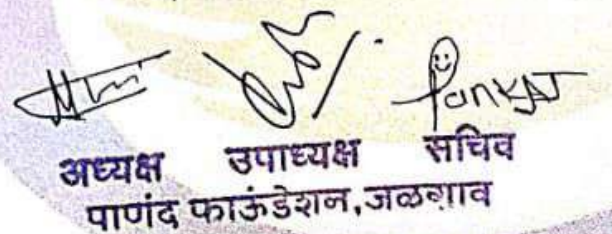 Pankaj
अध्यक्ष उपाध्यक्ष सचिव
पाणंद फाऊंडेशन,जळगाव